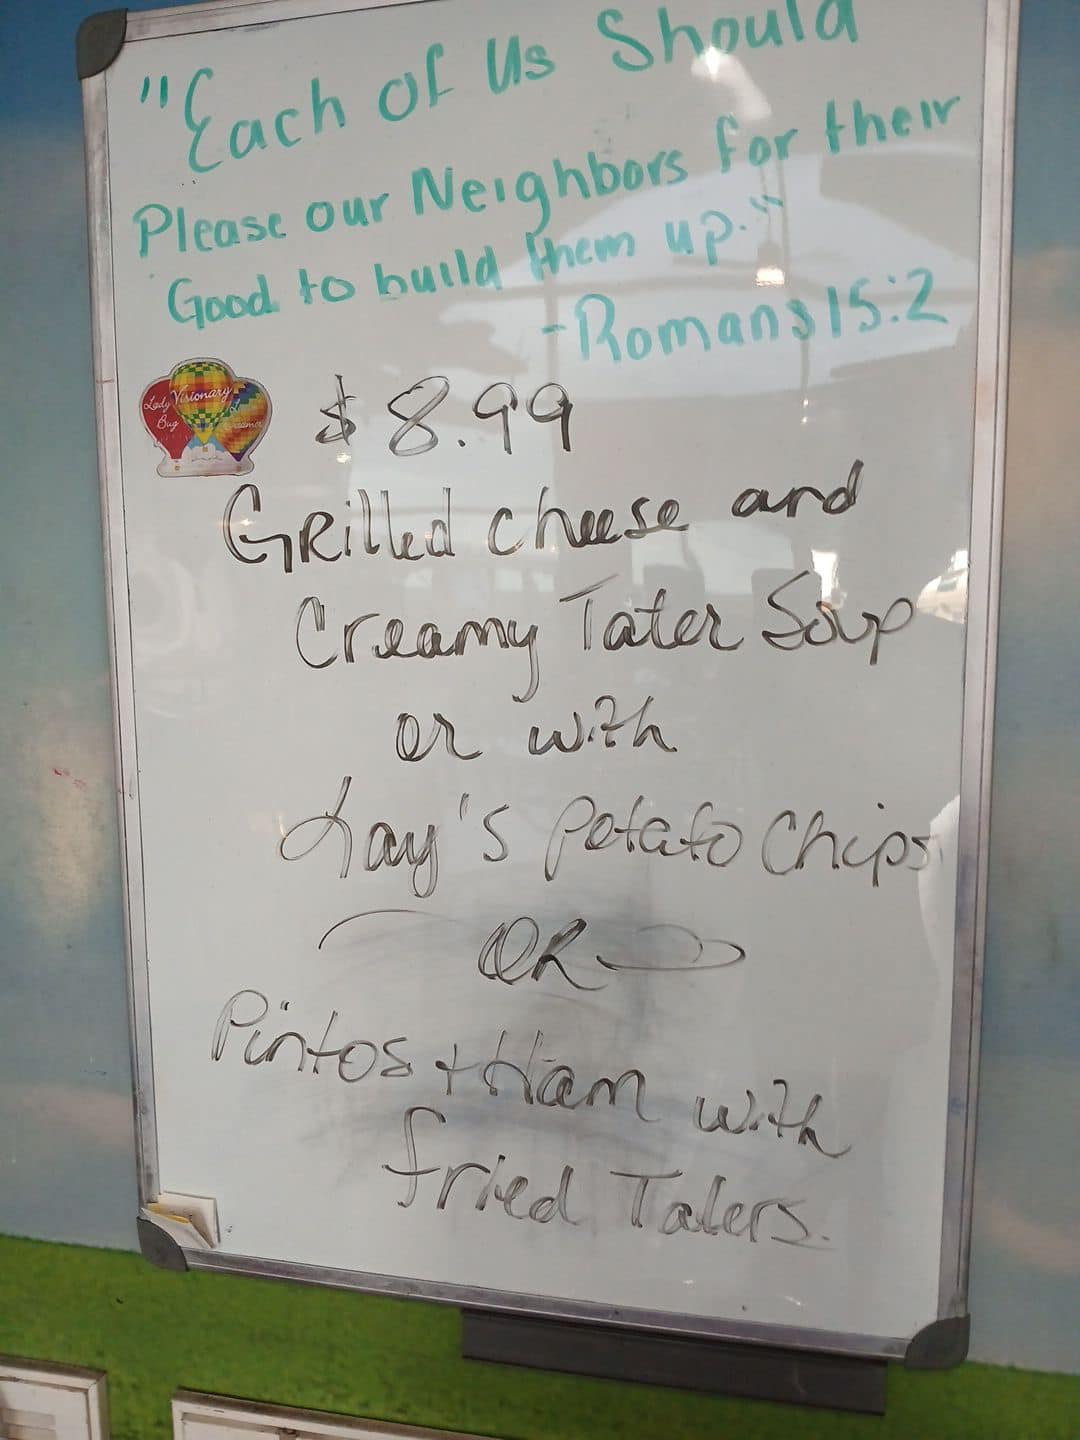 "Each of Us Should
Please our Neighbors for their
Good to build them up."
-Romans 15:2
Lady Bug
Visionary
$8.99
GRilled cheese and
Creamy Tater Soup
or with
Lay's Potato Chips
OR
Pintos + Ham with
fried Taters.